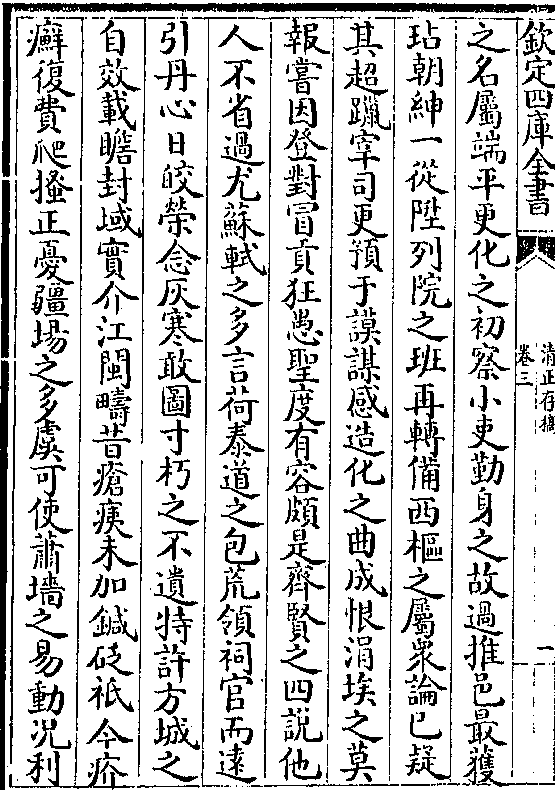 欽定四庫全書
清正存稿
卷三
一
之名屬端平更化之初察小吏勤身之故過推邑最獲
玷朝紳一從陞列院之班再轉備西樞之屬衆論已疑
其超躐宰司更預于謨謀感造化之曲成恨涓埃之莫
報嘗因登對冒貢狂愚聖度有容頗是齊賢之四說他
人不省過尤蘇軾之多言荷泰道之包荒領祠官而遠
引丹心日皎榮念灰寒敢圖寸朽之不遺特許方城之
自效載瞻封域實介江閩疇昔瘡痍未加鍼砭祇今疥
癬復費爬搔正憂疆埸之多虞可使蕭墻之易動况利